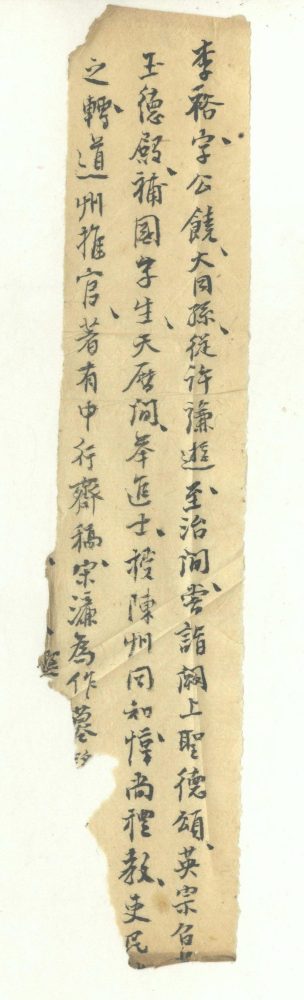 李裕字公饒大同孫從許謙遊至治間嘗詣闕上聖德頌英宗召見
玉德殿補國字生天曆間舉進士授陳州同知惟尚禮教吏民
之轉道州推官著有中行齋稿宋濂為作墓